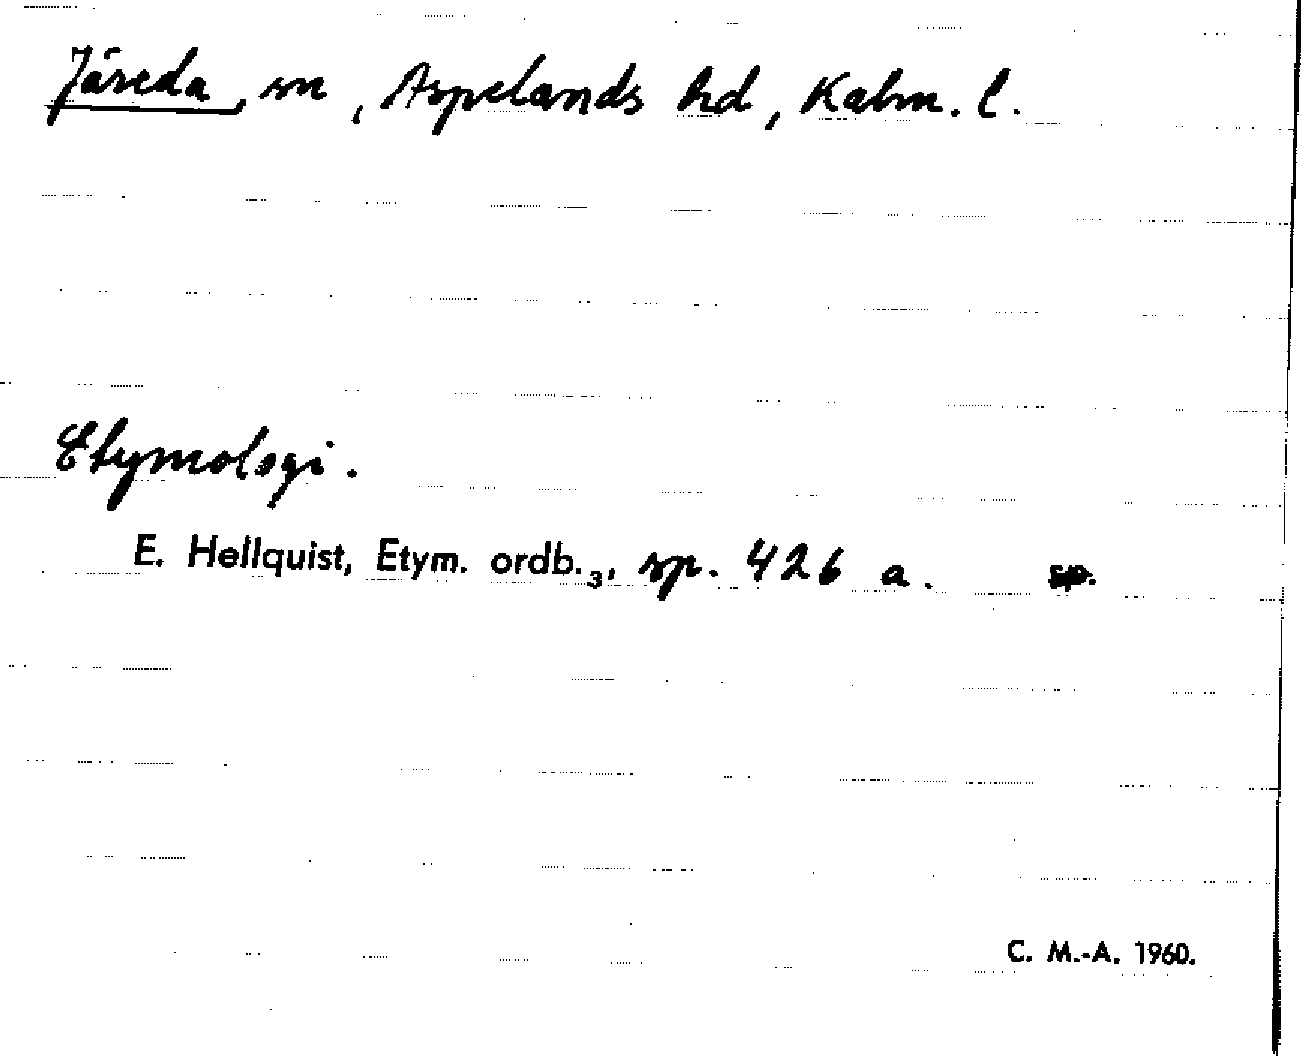 Järeda, sn, Aspelands hd, Kalm. l.
Etymologi.
E. Hellquist, Etym. ordb.₃, sp. 426 a.
C. M.-A. 1960.